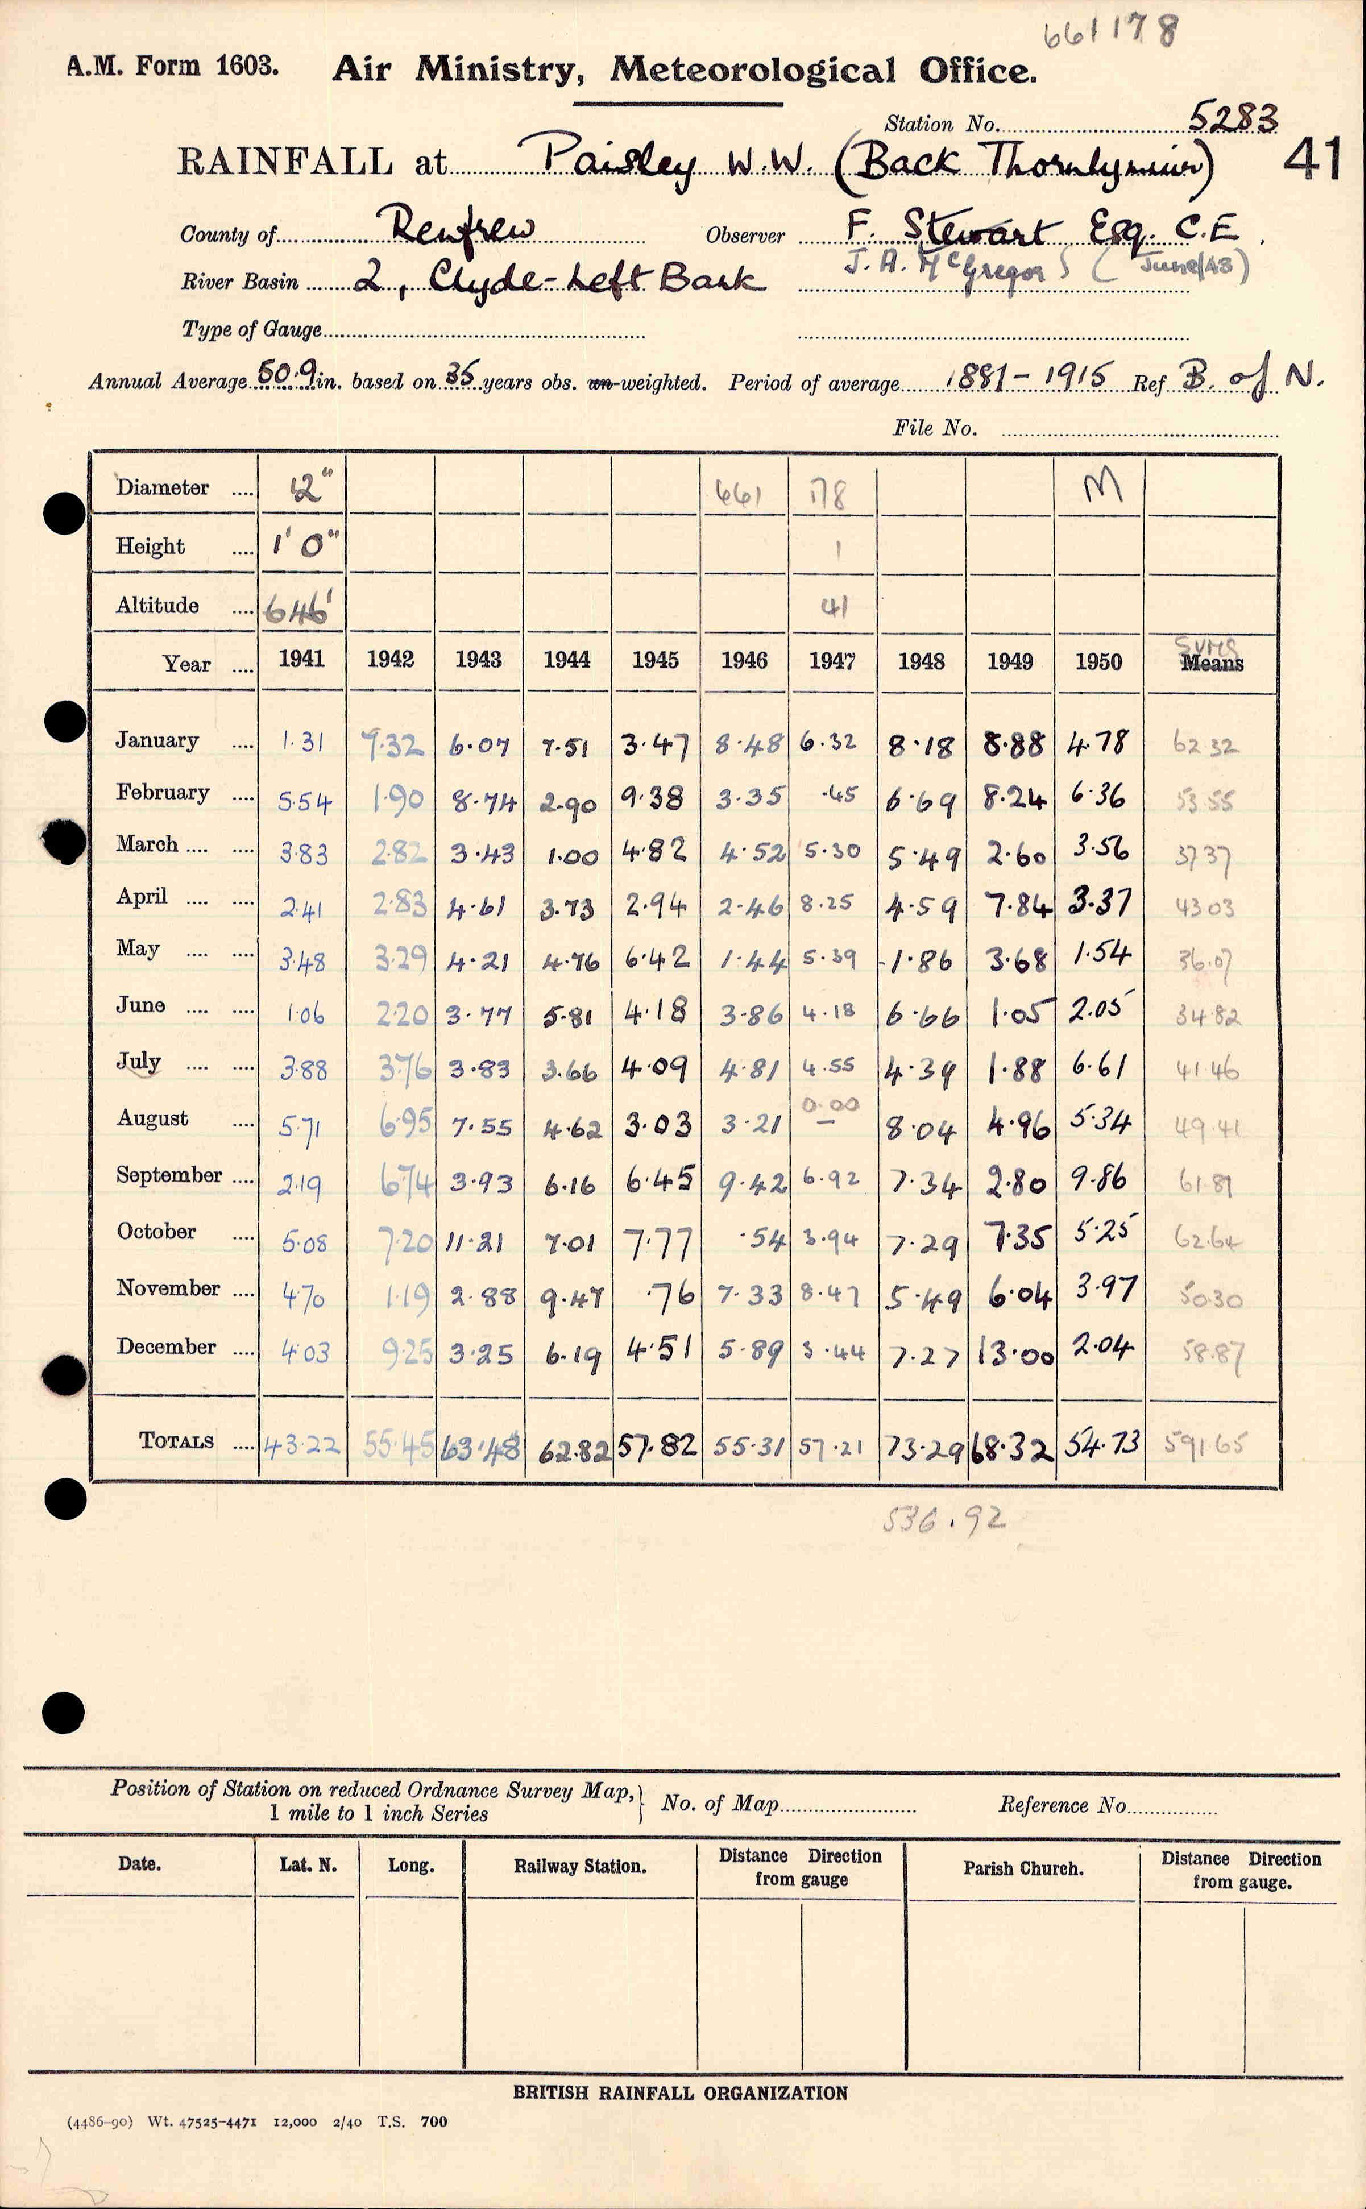 661178
A.M. Form 1603. Air Ministry, Meteorological Office.
Station No. 5283
RAINFALL at Paisley W.W. (Back Thornlymuir) 41
County of Renfrew Observer F. Stewart Esq. C.E.
River Basin 2, Clyde-Left Bank J. A. McGregor (June/43)
Type of Gauge
Annual Average 50.9 in. based on 35 years obs. un-weighted. Period of average 1881-1915 Ref B. of N.
File No.
Diameter .... 12" 661 178 M
Height .... 1' 0" 1
Altitude .... 646' 41
Sums
Year .... 1941 1942 1943 1944 1945 1946 1947 1948 1949 1950 Means
January .... 1.31 7.32 6.07 7.51 3.47 8.48 6.32 8.18 8.88 4.78 62.32
February .... 5.54 1.90 8.74 2.90 9.38 3.35 .45 6.69 8.24 6.36 53.55
March .... .... 3.83 2.82 3.43 1.00 4.82 4.52 5.30 5.49 2.60 3.56 37.37
April .... .... 2.41 2.83 4.61 3.73 2.94 2.46 8.25 4.59 7.84 3.37 43.03
May .... .... 3.48 3.29 4.21 4.76 6.42 1.44 5.39 1.86 3.68 1.54 36.07
June .... .... 1.06 2.20 3.77 5.81 4.18 3.86 4.18 6.66 1.05 2.05 34.82
July .... .... 3.88 3.76 3.83 3.66 4.09 4.81 4.55 4.39 1.88 6.61 41.46
0.00
August .... 5.71 6.95 7.55 4.62 3.03 3.21 — 8.04 4.96 5.34 49.41
September .... 2.19 6.74 3.93 6.16 6.45 9.42 6.92 7.34 2.80 9.86 61.81
October .... 5.08 7.20 11.21 7.01 7.77 .54 3.94 7.29 7.35 5.25 62.64
November .... 4.70 1.19 2.88 9.47 .76 7.33 8.47 5.49 6.04 3.97 50.30
December .... 4.03 9.25 3.25 6.19 4.51 5.89 3.44 7.27 13.00 2.04 58.87
TOTALS .... 43.22 55.45 63.48 62.82 57.82 55.31 57.21 73.29 68.32 54.73 591.65
536.92
Position of Station on reduced Ordnance Survey Map, 1 mile to 1 inch Series } No. of Map Reference No.
Date. Lat. N. Long. Railway Station. Distance from gauge Direction Parish Church. Distance Direction from gauge.
BRITISH RAINFALL ORGANIZATION
(4486-90) Wt. 47525-4471 12,000 2/40 T.S. 700